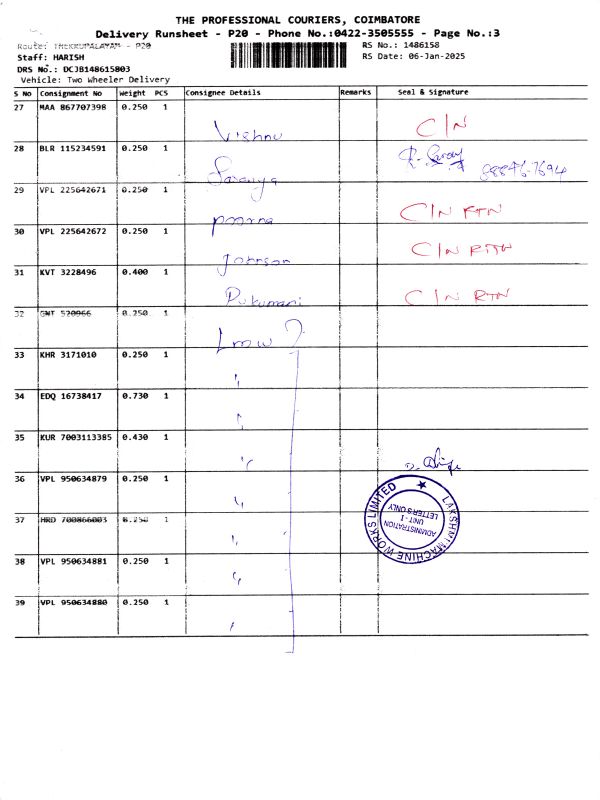 THE PROFESSIONAL COURIERS, COIMBATORE
Delivery Runsheet - P20 - Phone No.:0422-3505555 - Page No.:3
Route: THEKKUPALAYAM - P20
RS No.: 1486158
Staff: HARISH
RS Date: 06-Jan-2025
DRS No.: DCJB148615803
Vehicle: Two Wheeler Delivery
S No Consignment No Weight PCS Consignee Details Remarks Seal & Signature
27 MAA 867707398 0.250 1
Vishnu C/N
28 BLR 115234591 0.250 1
Saranya
29 VPL 225642671 0.250 1
Poorna C/N RTN
30 VPL 225642672 0.250 1
Johnson C/N RTN
31 KVT 3228496 0.400 1
Rukumani C/N RTN
32 GMT 520966 0.250 1
Lmw
33 KHR 3171010 0.250 1
"
34 EDQ 16738417 0.730 1
"
35 KUR 7003113385 0.430 1
"
36 VPL 950634879 0.250 1
"
37 HRD 700866003 0.250 1
"
38 VPL 950634881 0.250 1
"
39 VPL 950634880 0.250 1
LAKSHMI MACHINE WORKS LIMITED
ADMINISTRATION
UNIT - I
LETTERS ONLY